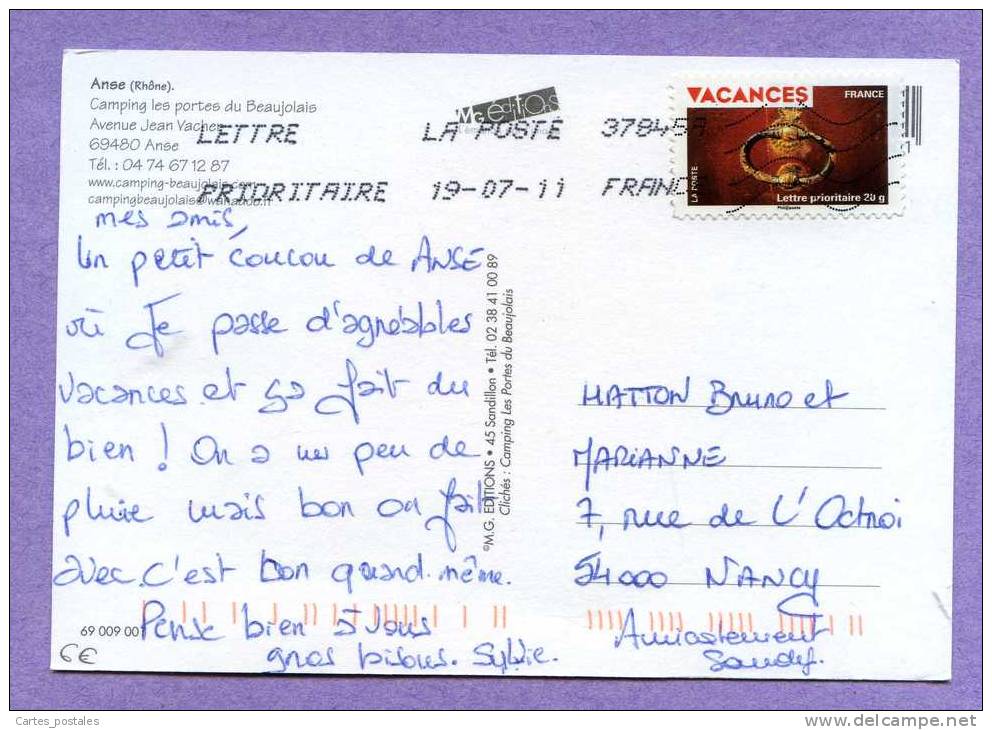 Anse (Rhône).
Camping les portes du Beaujolais
Avenue Jean Vacher
69480 Anse
Tél. : 04 74 67 12 87
www.camping-beaujolais.com
campingbeaujolais@wanadoo.fr
M.G. editions
LETTRE LA POSTE 37845A
PRIORITAIRE 19-07-11 FRANCE
VACANCES
FRANCE
LA POSTE
Lettre prioritaire 20 g
mes amis,
Un petit coucou de ANSE
où Je passe d'agréables
vacances et ça fait du
bien ! On a un peu de
pluie mais bon on fait
avec. C'est bon quand même.
Pense bien à Vous
gros bisous. Sylvie.
©M.G. EDITIONS • 45 Sandillon • Tél. 02 38 41 00 89
Clichés : Camping Les Portes du Beaujolais
HATTON Bruno et
MARIANNE
7, rue de L'Octroi
54000 NANCY
Sandy.
69 009 00
6€
Cartes_postales
www.delcampe.net